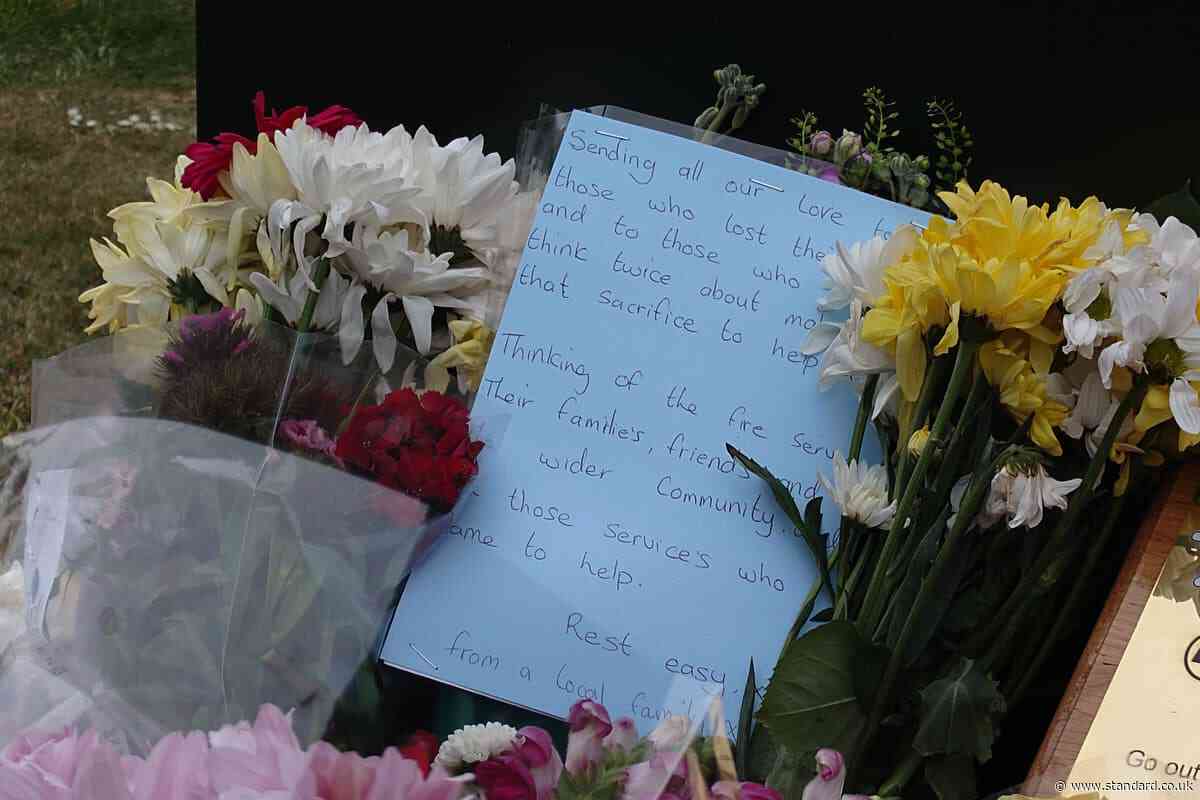 Sending all our love to
those who lost the
and to those who
think twice about
that sacrifice to help
Thinking of the fire serv
Their familie's, friends and
wider Community. and
those service's who
ame to help.
Rest easy,
from a local family
Go out
© www.standard.co.uk